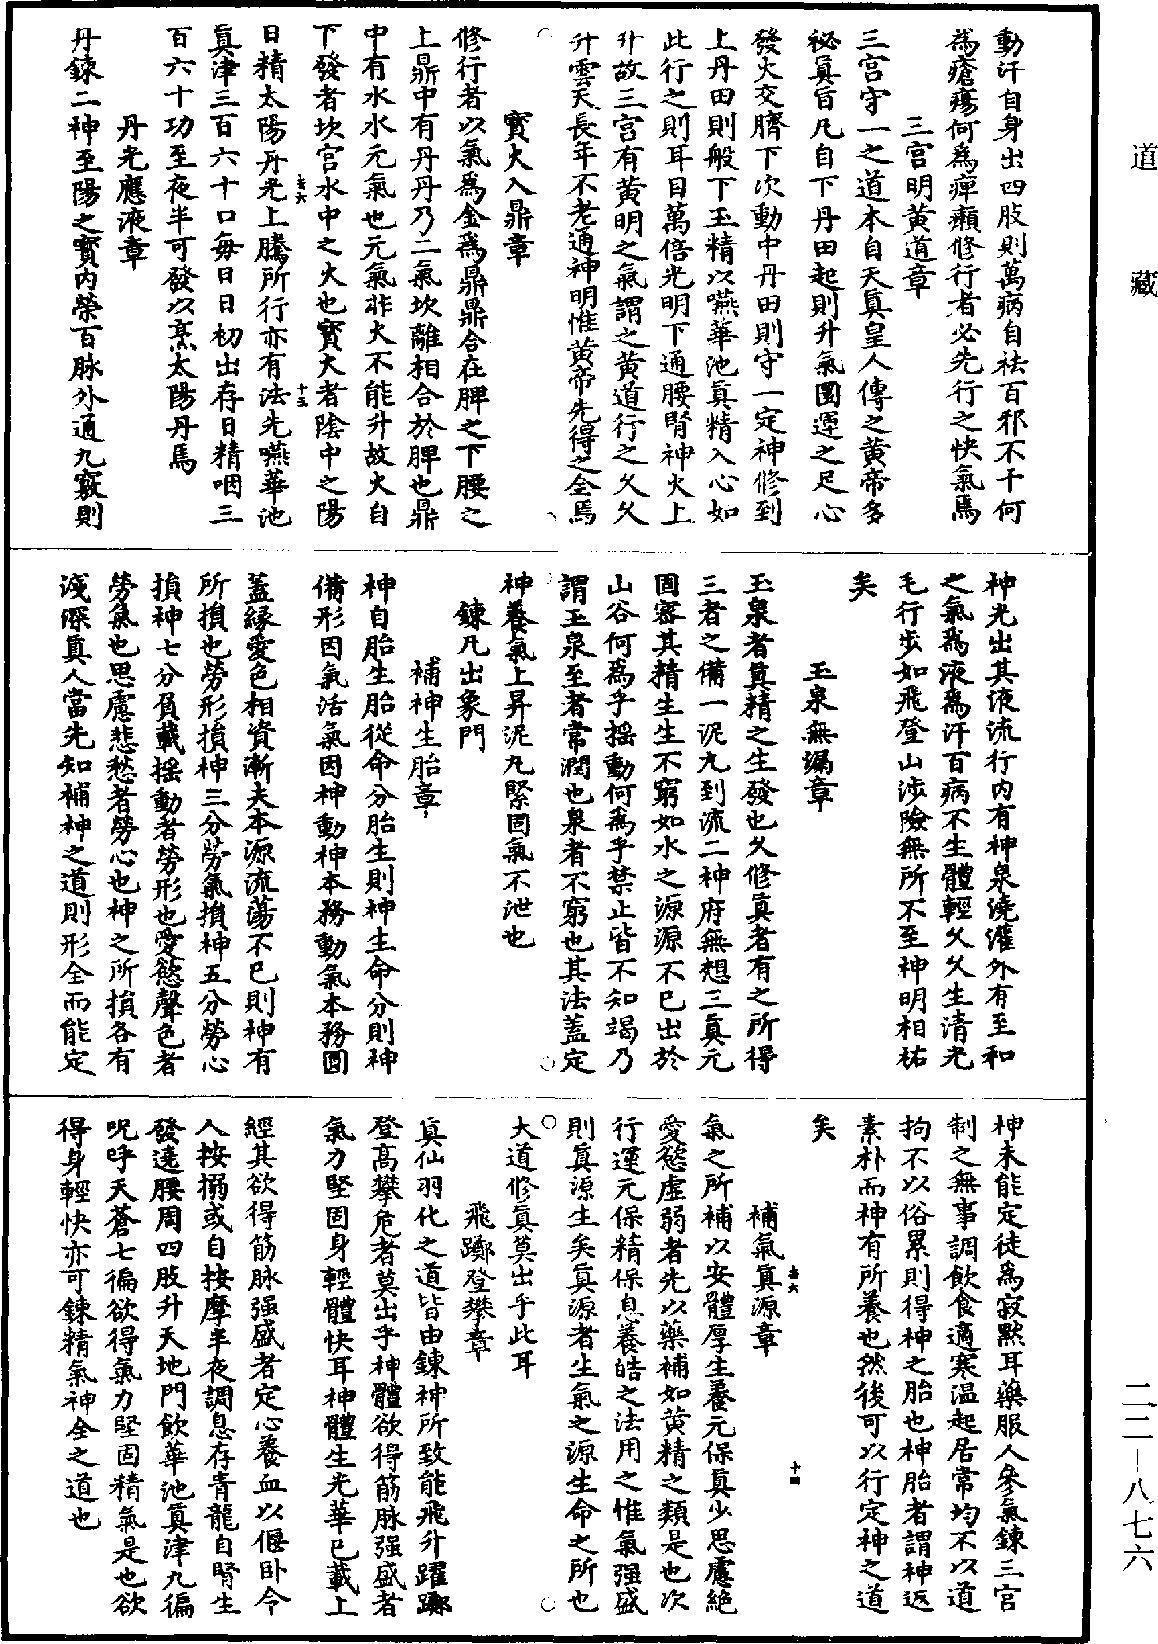 道藏
動汗自身出四肢則萬病自祛百邪不干何
爲瘡瘍何爲癉癩修行者必先行之快氣焉
三宮明黃道章
三宮守一之道本自天真皇人傳之黃帝多
祕真旨凡自下丹田起則升氣圍運之足心
發火交臍下次動中丹田則守一定神修到
上丹田則般下玉精以嚥華池真精入心如
此行之則耳目萬倍光明下通腰腎神火上
升故三宮有黃明之氣謂之黃道行之久久
升雲天長年不老通神明惟黃帝先得之全焉
寳火入鼎章
修行者以氣爲金爲鼎鼎合在脾之下腰之
上鼎中有丹丹乃二氣坎離相合於脾也鼎
中有水水元氣也元氣非火不能升故火自
下發者坎宮水中之火也寳火者陰中之陽
日精太陽丹光上騰所行亦有法先嚥華池
真津三百六十口每日日初出存日精咽三
百六十功至夜半可發以烹太陽丹焉
丹光應液章
丹鍊二神至陽之寳内榮百脉外通九竅則
神光出其液流行内有神泉澆灌外有至和
之氣爲液爲汗百病不生體輕久久生清光
毛行步如飛登山涉險無所不至神明相祐
矣
玉泉無漏章
玉泉者真精之生發也久修真者有之所得
三者之備一泥九到流二神府無想三真元
固密其精生生不窮如水之源源不已出於
山谷何爲乎搖動何爲乎禁止皆不知竭乃
謂玉泉至者常潤也泉者不窮也其法蓋定
神養氣上昇泥九緊固氣不泄也
鍊凡出象門
補神生胎章
神自胎生胎從命分胎生則神生命分則神
備形因氣活氣因神動神本務動氣本務固
蓋緣愛色相資漸夫本源流蕩不已則神有
所損也勞形損神三分勞氣損神五分勞心
損神七分負載搖動者勞形也愛慾聲色者
勞氣也思慮悲愁者勞心也神之所損各有
淺深真人當先知補神之道則形全而能定
神未能定徒爲寂默耳藥服人參氣鍊三宮
制之無事調飲食適寒温起居常均不以道
拘不以俗累則得神之胎也神胎者謂神返
素朴而神有所養也然後可以行定神之道
矣
補氣真源章
氣之所補以安體厚生養元保真少思慮絶
愛慾虚弱者先以藥補如黃精之類是也次
行運元保精保息養皓之法用之惟氣强盛
則真源生矣真源者生氣之源生命之所也
大道修真莫出乎此耳
飛躑登攀章
真仙羽化之道皆由鍊神所致能飛升躍躑
登高攀危者莫出乎神體欲得筋脉强盛者
氣力堅固身輕體快耳神體生光華已載上
經其欲得筋脉强盛者定心養血以偃卧令
人按搦或自按摩半夜調息存青龍自腎生
發遶腰周四肢升天地門飲華池真津九徧
呪呼天蒼七徧欲得氣力堅固精氣是也欲
得身輕快亦可鍊精氣神全之道也
二二－八七六